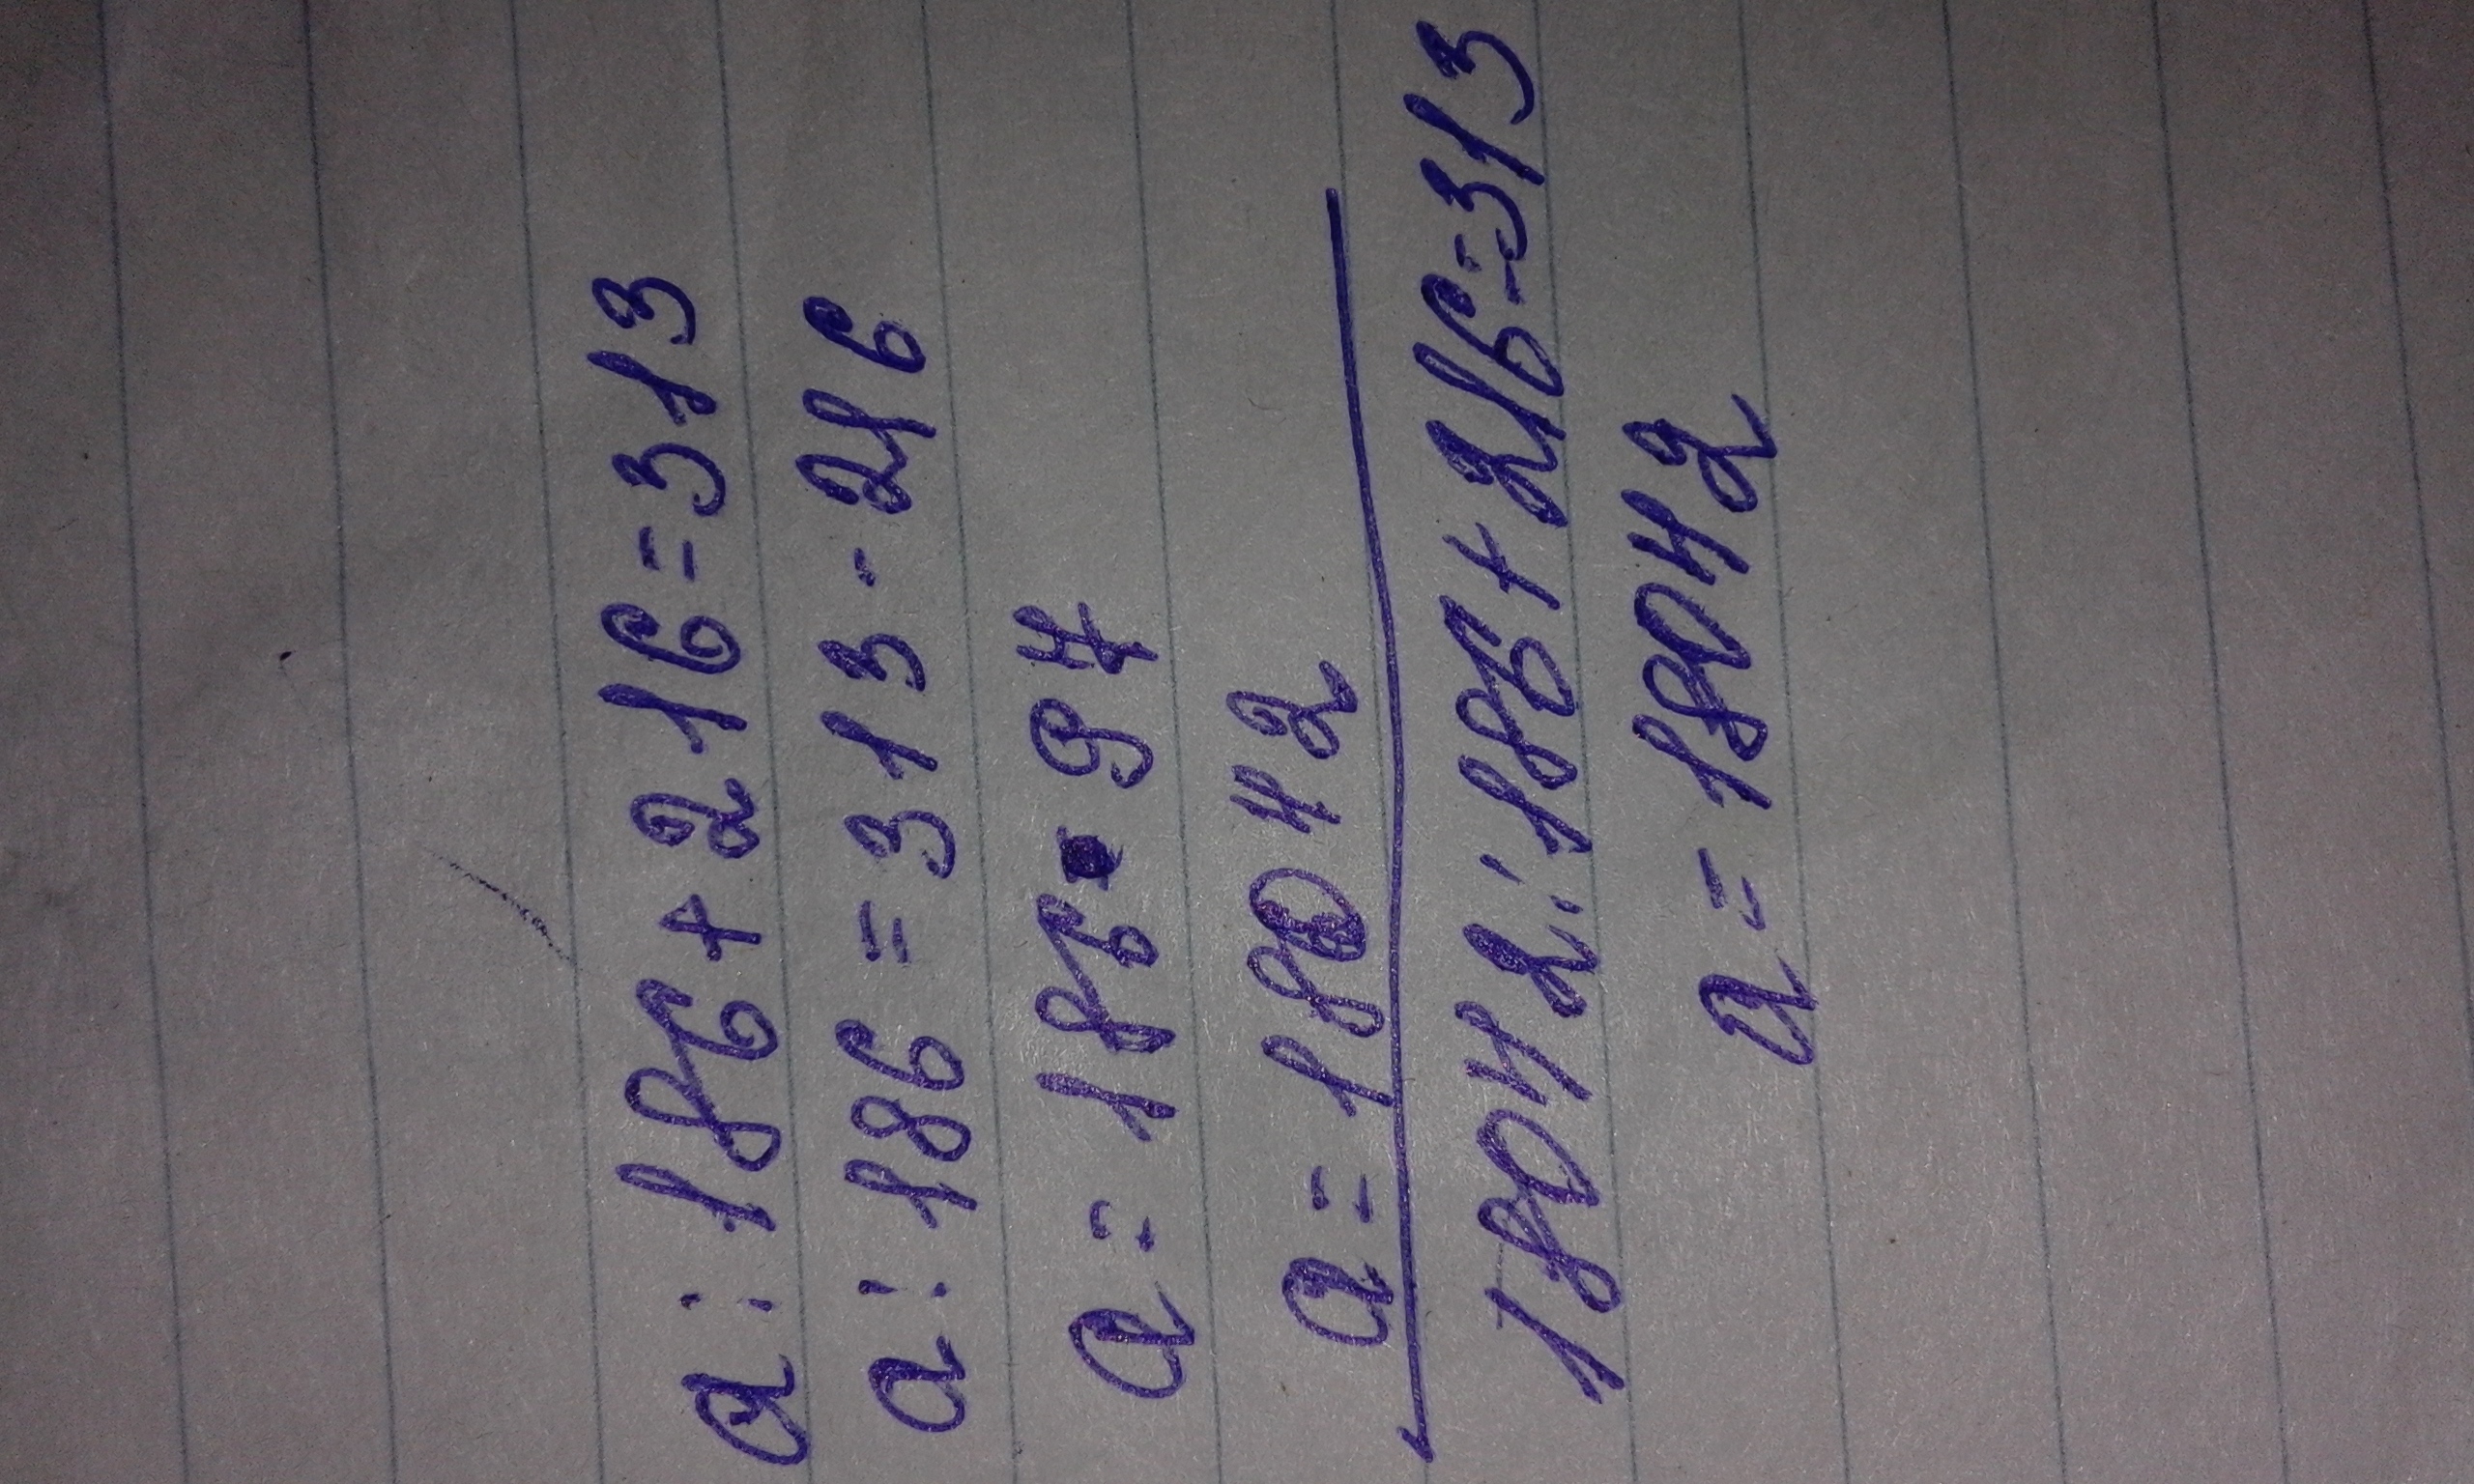 a : 186 + 216 = 313
a : 186 = 313 - 216
a = 186 • 97
a = 18042
18042 : 186 + 216 = 313
a = 18042